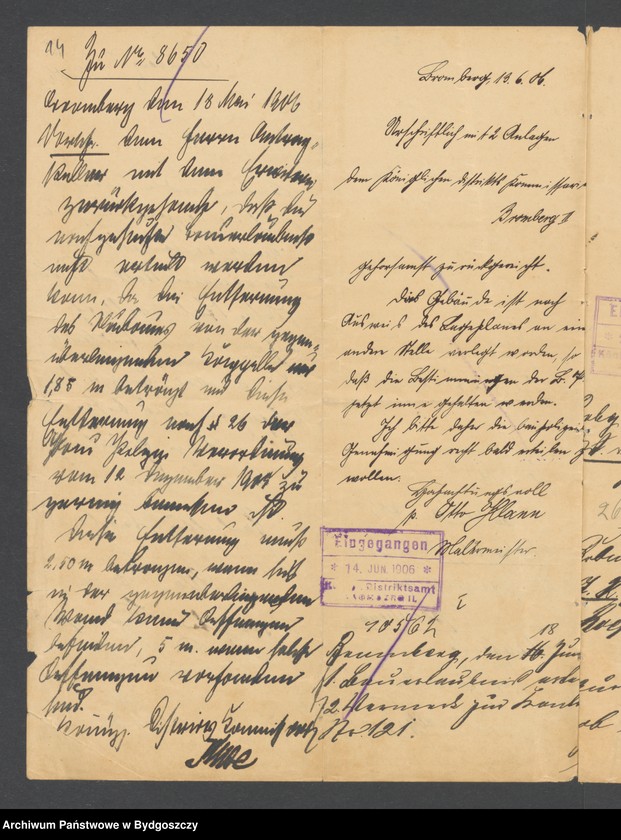 14
Zu No. 8650
Bromberg den 18 Mai 1906
Urschr. dem Herrn Antrag-
steller mit dem
zurückgesandt, daß die
nachgesuchte Bauerlaubniß
nicht erteilt werden
kann, da die Entfernung
des Neubaues von der gegen-
überliegenden nur
1,85 m beträgt und diese
Entfernung nach § 26 der
Bau Polizei Verordnung
vom 12 Dezember zu
gering bemessen ist.
Diese Entfernung muß
2,50 m betragen, wenn sich
in der gegenüberliegenden
Wand keine Oeffnungen
befinden, 5 m. wenn solche
Oeffnungen vorhanden
sind.
Königl. Distrikts Kommissar
Bromberg, 13.6.06.
Urschriftlich mit 2 Anlagen
dem Königlichen Distrikts Kommissar
Bromberg II
gehorsamst zurückgereicht.
Das Gebäude ist nach
Ausweis des Lageplanes an ein
andere Stelle verlegt worden, so
daß die Bestimmungen der B. P.
jetzt inne gehalten werden.
Ich bitte daher die baupolizei
Genehmigung recht bald erteilen z
wollen.
Hochachtungsvoll
p. Otto
Malermeister.
Eingegangen
* 14. JUN. 1906 *
K. Distriktsamt
II.
Bromberg, den 18 Jun
1. Bauerlaubnis
2. Vermerk zur
No 121.
26
Archiwum Państwowe w Bydgoszczy